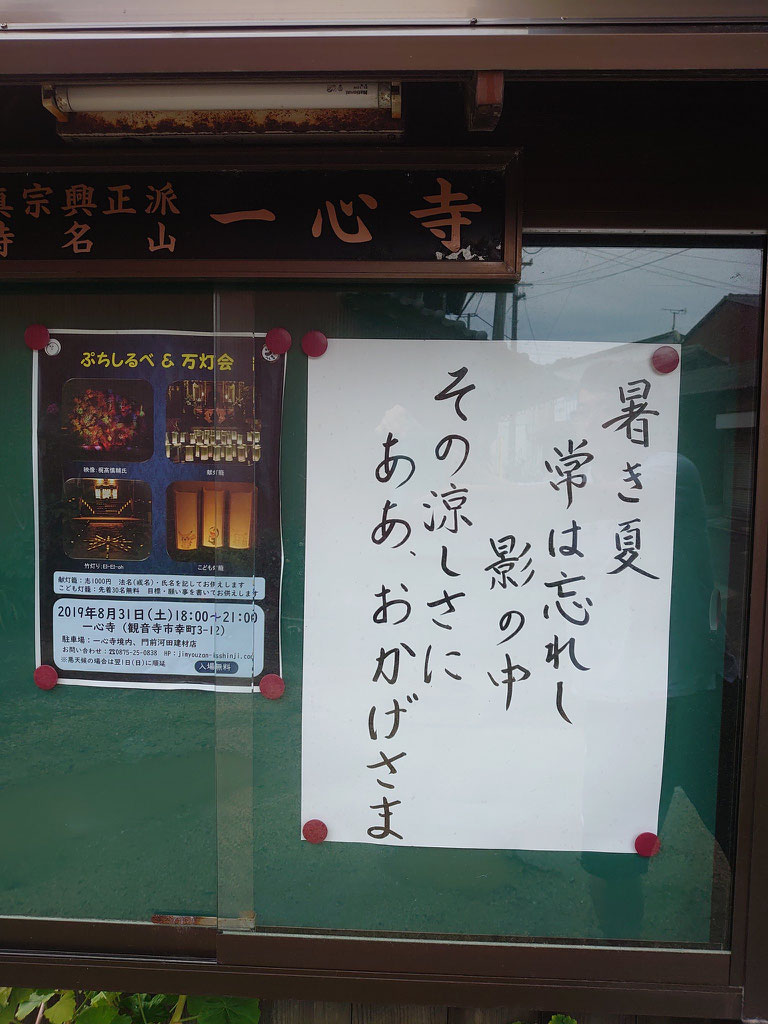 National
真宗興正派
寺名山
一心寺
ぷちしるべ & 万灯会
映像:梶高慎輔氏
献灯籠
竹灯り:Ei-Ei-oh
こども灯籠
献灯籠:志1000円 法名(戒名)・氏名を記してお供えします
こども灯籠:先着30名無料 目標・願い事を書いてお供えします
2019年8月31日(土)18:00~21:00
一心寺(観音寺市幸町3-12)
駐車場:一心寺境内、門前河田建材店
お問い合わせ:☎0875-25-0838 HP:jimyouzan-isshinji.com
※悪天候の場合は翌1日(日)に順延
入場無料
暑き夏
常は忘れし
影の中
その涼しさに
ああ、おかげさま